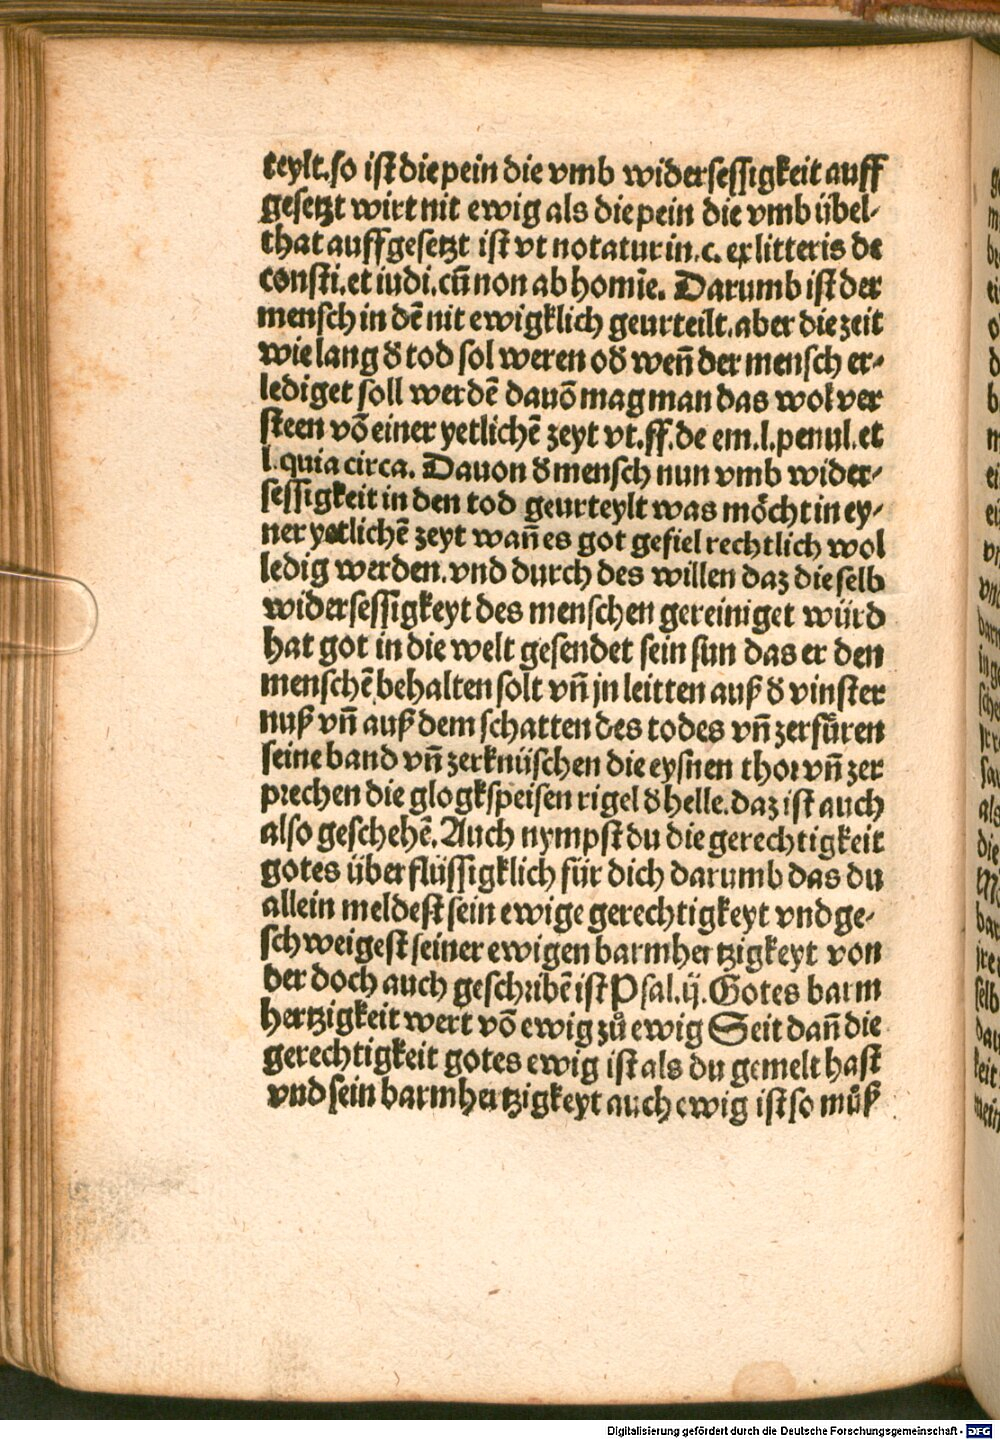 teylt.so ist die pein die vmb widersessigkeit auff
gesetzt wirt nit ewig als die pein die vmb übel-
that auffgesetzt ist vt notatur in.c. ex litteris de
consti.et iudi.cū non ab homīe. Darumb ist der
mensch in dē nit ewigklich geurteilt.aber die zeit
wie lang d̕ tod sol weren od̕ weñ der mensch er-
lediget soll werdē dauō mag man das wol ver
steen vō einer yetlichē zeyt vt.ff.de em.l.penul.et
l.quia circa. Dauon d̕ mensch nun vmb wider-
sessigkeit in den tod geurteylt was möcht in ey-
ner yetlichē zeyt wañ es got gefiel rechtlich wol
ledig werden.vnd durch des willen daz die selb
widersessigkeyt des menschen gereiniget würd
hat got in die welt gesendet sein sun das er den
menschē behalten solt vñ jn leitten auß d̕ vinster
nuß vñ auß dem schatten des todes vñ zerfüren
seine band vñ zerknüschen die eysnen thor vñ zer
prechen die glogkspeisen rigel d̕ helle.daz ist auch
also geschehē. Auch nympst du die gerechtigkeit
gotes überflüssigklich für dich darumb das du
allein meldest sein ewige gerechtigkeyt vnd ge-
schweigest seiner ewigen barmhertzigkeyt von
der doch auch geschribē ist Psal.ij. Gotes barm
hertzigkeit wert vō ewig zů ewig Seit dañ die
gerechtigkeit gotes ewig ist als du gemelt hast
vnd sein barmhertzigkeyt auch ewig ist so můß
Digitalisierung gefördert durch die Deutsche Forschungsgemeinschaft - DFG